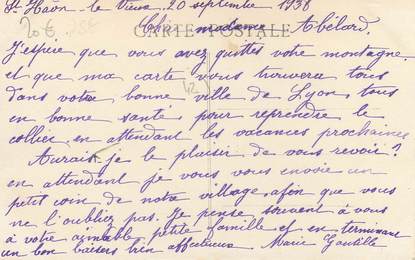 St Haon-le-Vieux 20 septembre 1938
20 €
CARTE POSTALE
Chère madame Abélard,
J'espère que vous avez quittés votre montagne
et que ma carte vous trouvera tous
dans votre bonne ville de Lyon, tous
en bonne santé pour reprendre le
collier en attendant les vacances prochaines
Aurais-je le plaisir de vous revoir?
en attendant je vous envoie un
petit coin de notre village afin que vous
ne l'oubliez pas. Je pense souvent à vous
à votre aimable petite famille et en terminant
un bon baisers bien affectueux Marie